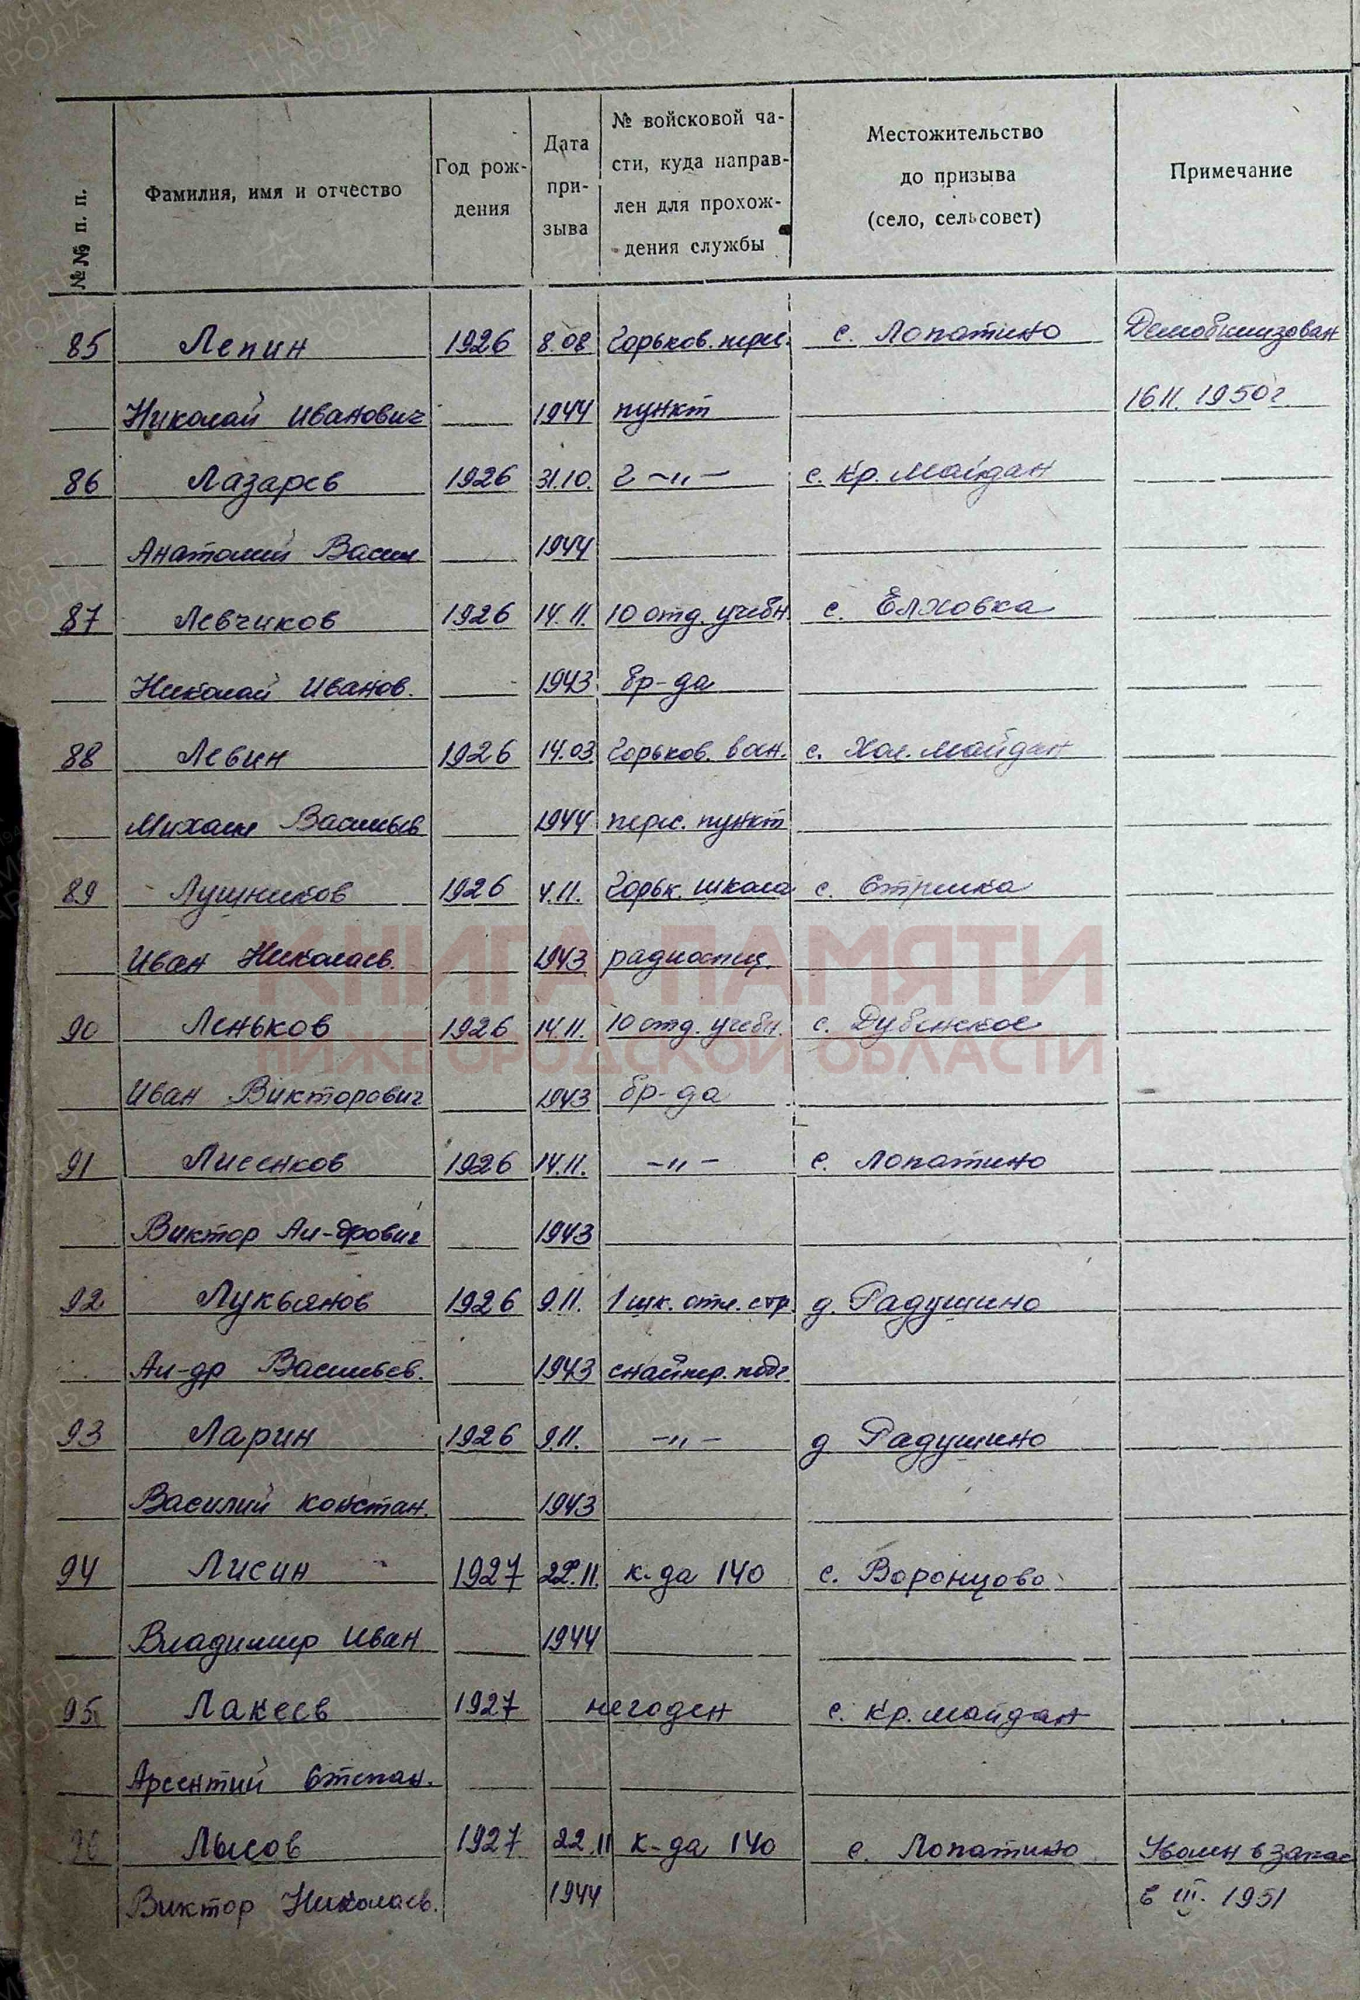 №№ п. п.
Фамилия, имя и отчество
Год рож-
дения
Дата
при-
зыва
№ войсковой ча-
сти, куда направ-
лен для прохож-
дения службы
Местожительство
до призыва
(село, сельсовет)
Примечание
85 Лепин 1926 8.08 Горьков. перес. с. Лопатино Демобилизован
Николай Иванович 1944 пункт 16 II. 1950 г
86 Лазарев 1926 31.10. г -"- с. Кр. Майдан
Анатолий Васил 1944
87 Левчиков 1926 14.11. 10 отд. учебн. с. Елховка
Николай Иванов. 1943 бр-да
88 Левин 1926 14.03 Горьков. воен. с. Хол. Майдан
Михаил Васильев 1944 перес. пункт
89 Лушников 1926 4.11. Горьк. школа с. Стрелка
Иван Николаев. 1943 радиоспец.
90 Леньков 1926 14.11. 10 отд. учебн. с. Дубенское
Иван Викторович 1943 бр-да
91 Лисенков 1926 14.11. -"- с. Лопатино
Виктор Ал-дрович 1943
92 Лукьянов 1926 9.11. 1 шк. отл. стр. д. Радушино
Ал-др Васильев. 1943 снайпер. подг
93 Ларин 1926 9.11. -"- д Радушино
Василий Констан. 1943
94 Лисин 1927 22.11. к-да 140 с. Воронцово
Владимир Иван 1944
95 Лакеев 1927 негоден с. Кр. Майдан
Арсентий Степан.
96 Лысов 1927 22.11 к-да 140 с. Лопатино Уволен в запас
Виктор Николаев. 1944 в III. 1951
КНИГА ПАМЯТИ
НИЖЕГОРОДСКОЙ ОБЛАСТИ